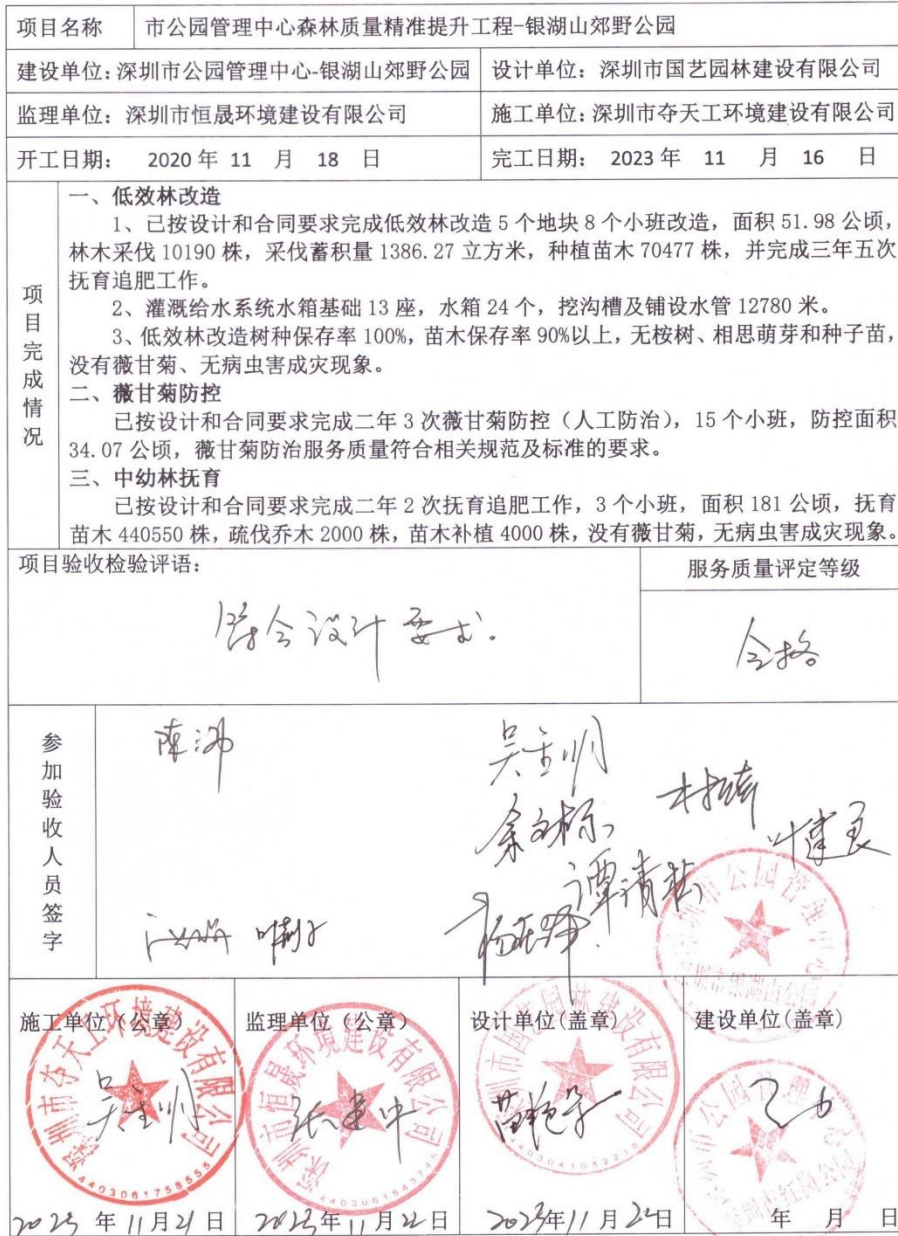 项目名称 市公园管理中心森林质量精准提升工程-银湖山郊野公园
建设单位:深圳市公园管理中心-银湖山郊野公园 设计单位：深圳市国艺园林建设有限公司
监理单位：深圳市恒晟环境建设有限公司 施工单位:深圳市夺天工环境建设有限公司
开工日期： 2020 年 11 月 18 日 完工日期： 2023 年 11 月 16 日
项目完成情况
一、低效林改造
1、已按设计和合同要求完成低效林改造 5 个地块 8 个小班改造，面积 51.98 公顷，
林木采伐 10190 株，采伐蓄积量 1386.27 立方米，种植苗木 70477 株，并完成三年五次
抚育追肥工作。
2、灌溉给水系统水箱基础 13 座，水箱 24 个，挖沟槽及铺设水管 12780 米。
3、低效林改造树种保存率 100%，苗木保存率 90%以上，无桉树、相思萌芽和种子苗，
没有薇甘菊、无病虫害成灾现象。
二、薇甘菊防控
已按设计和合同要求完成二年 3 次薇甘菊防控（人工防治），15 个小班，防控面积
34.07 公顷，薇甘菊防治服务质量符合相关规范及标准的要求。
三、中幼林抚育
已按设计和合同要求完成二年 2 次抚育追肥工作，3 个小班，面积 181 公顷，抚育
苗木 440550 株，疏伐乔木 2000 株，苗木补植 4000 株，没有薇甘菊，无病虫害成灾现象。
项目验收检验评语： 服务质量评定等级
符合设计要求。 合格
参加验收人员签字
谭清
叶建良
施工单位（公章） 监理单位（公章） 设计单位(盖章) 建设单位(盖章)
深圳市夺天工环境建设有限公司
4403061758555
深圳市恒晟环境建设有限公司
深圳市国艺园林建设有限公司
深圳市公园管理中心
张建中
2023 年 11 月 21 日 2023 年 11 月 22 日 2023 年 11 月 24 日 年 月 日